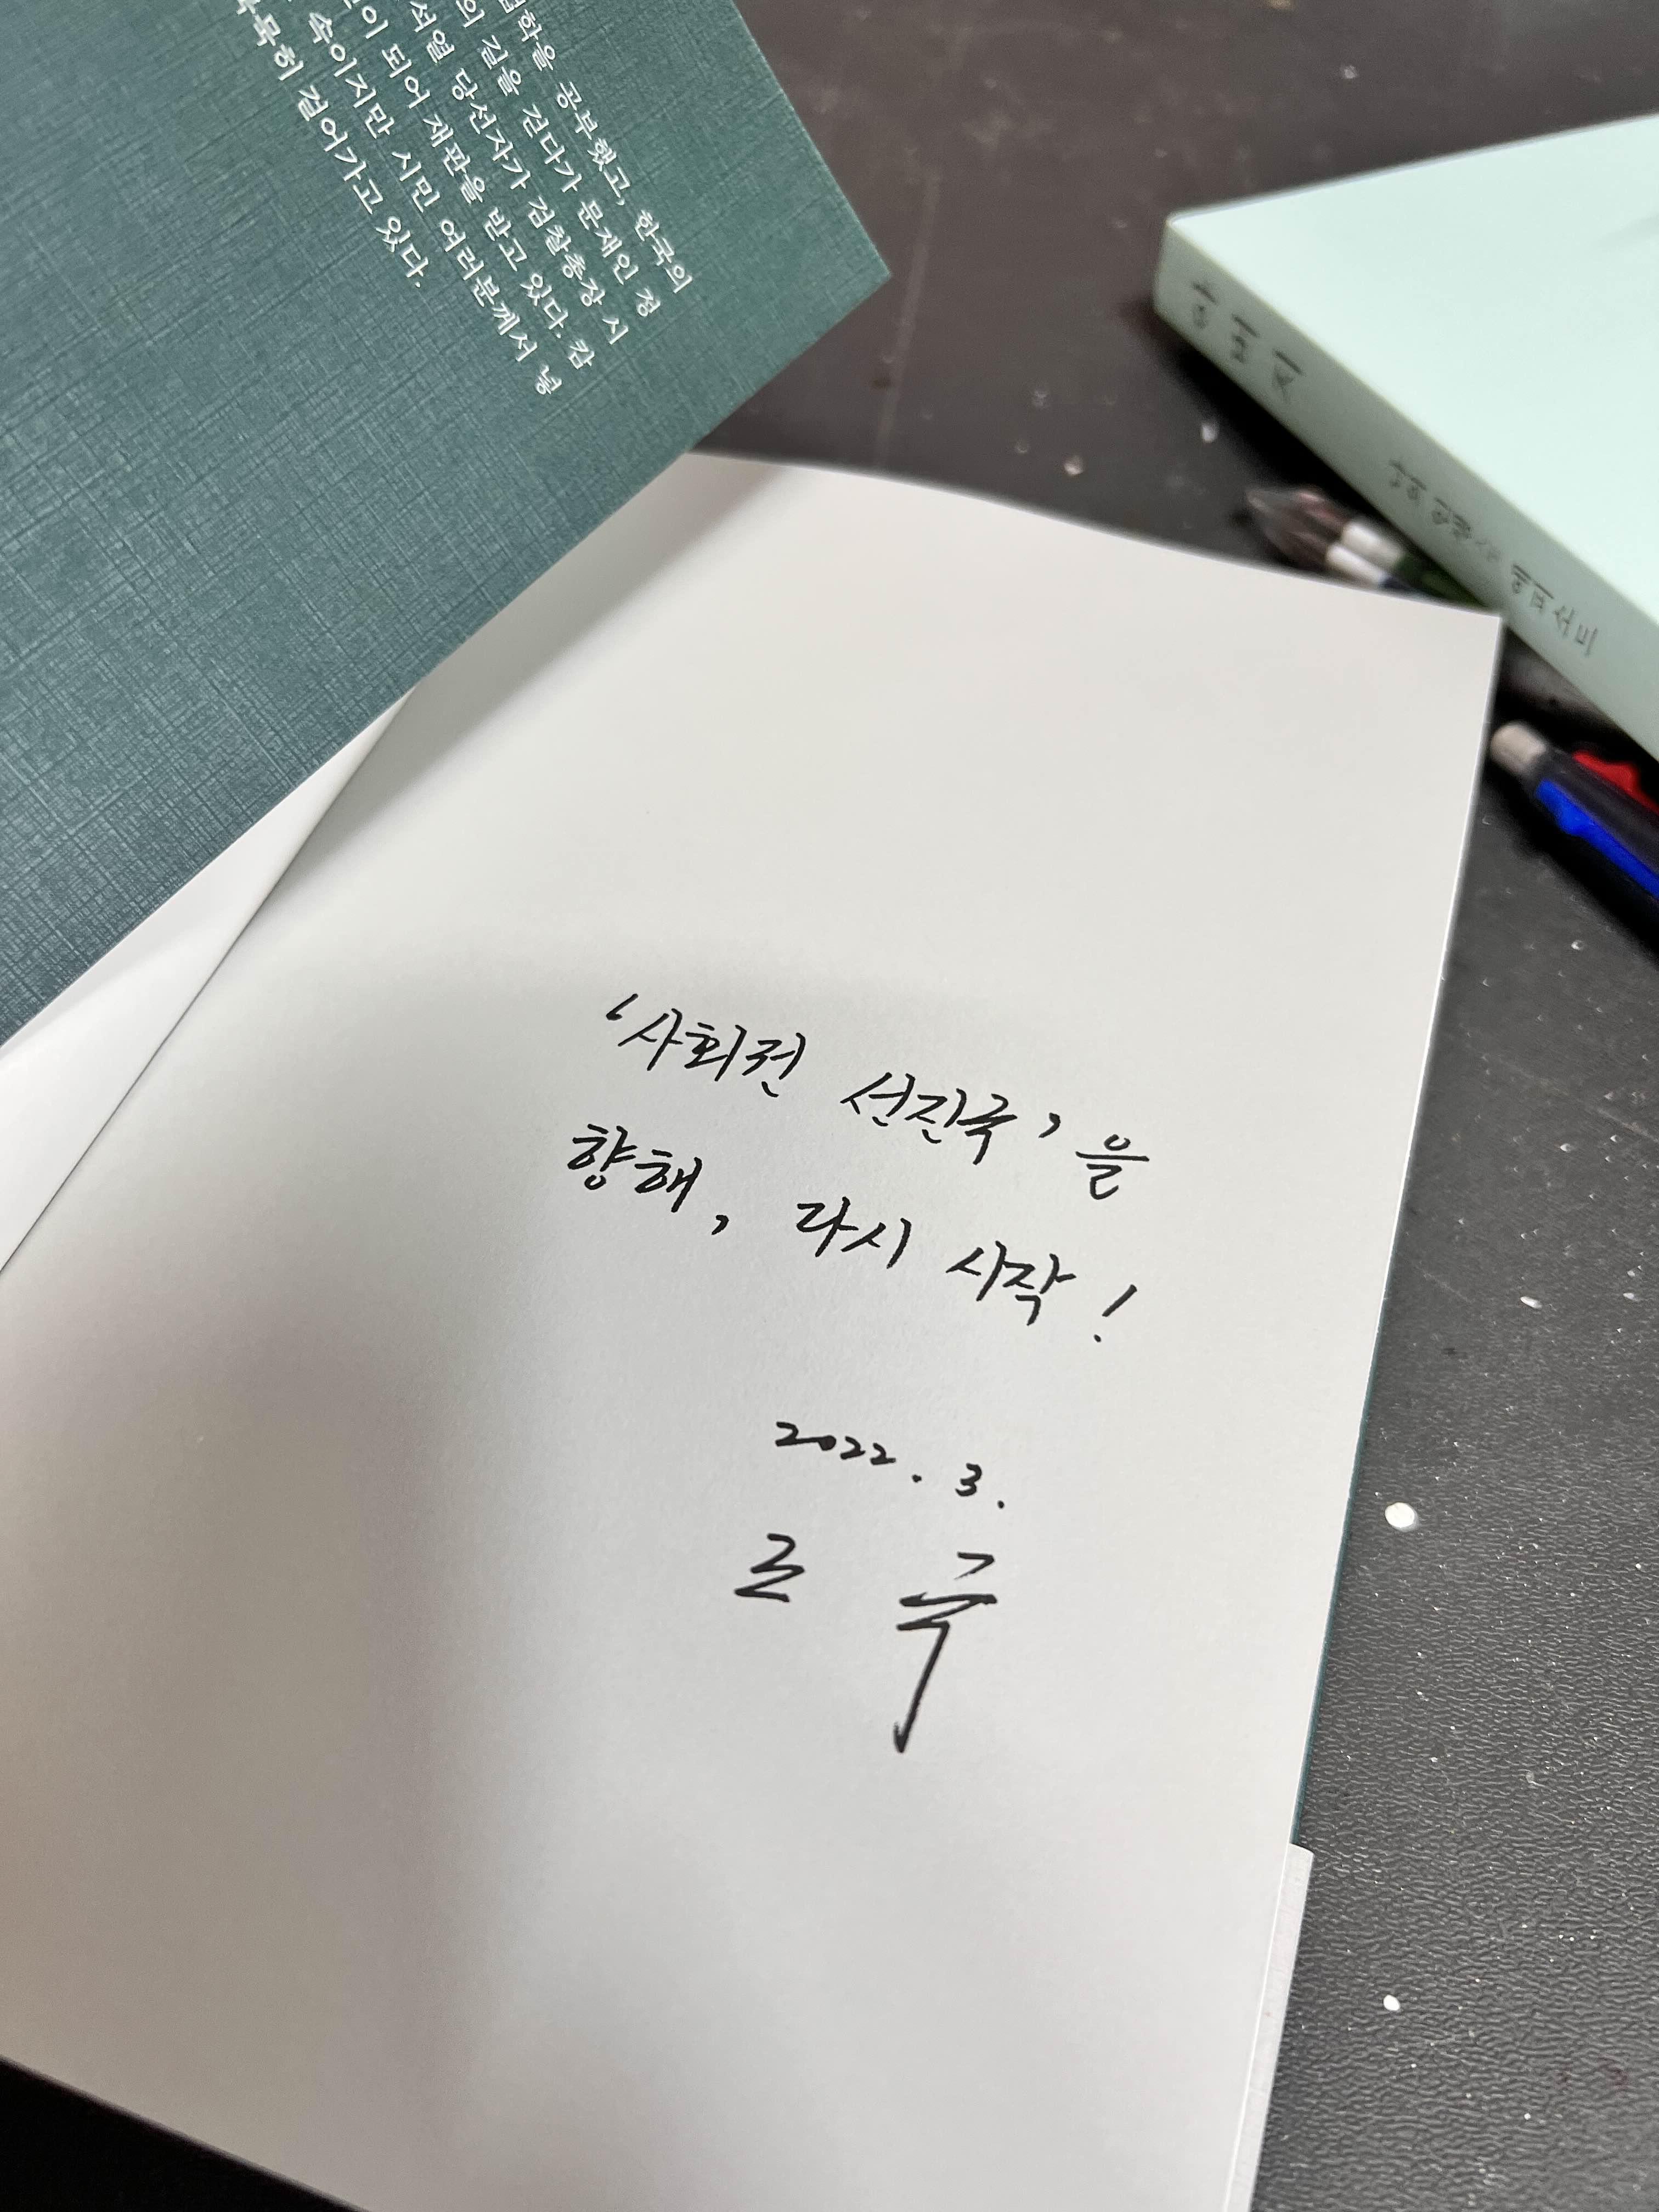 법학을 공부했고, 한국의
의 길을 걷다가 문재인 정
석열 당선자가 검찰총장 시
이 되어 재판을 받고 있다. 캄
속이지만 시민 여러분께서 넣
묵히 걸어가고 있다.
'사회권 선진국'을
향해, 다시 시작!
2022. 3.
조 국
에피소드